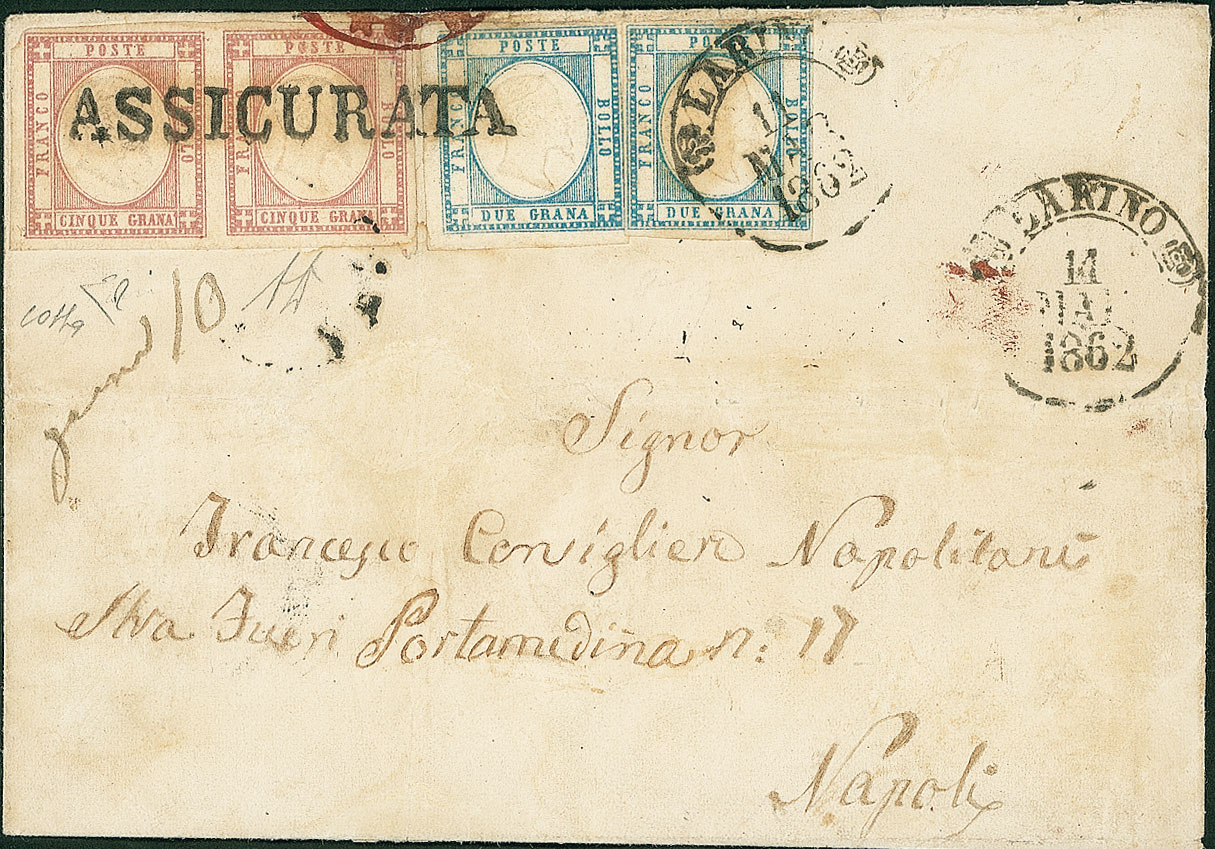 POSTE FRANCO BOLLO CINQUE GRANA
POSTE FRANCO BOLLO CINQUE GRANA
POSTE FRANCO BOLLO DUE GRANA
POSTE FRANCO BOLLO DUE GRANA
ASSICURATA
LARINO
1862
LARINO
14
MAG
1862
10
Signor
Francesco Consigliere Napolitani
Fuori Portamedina n: 17
Napoli